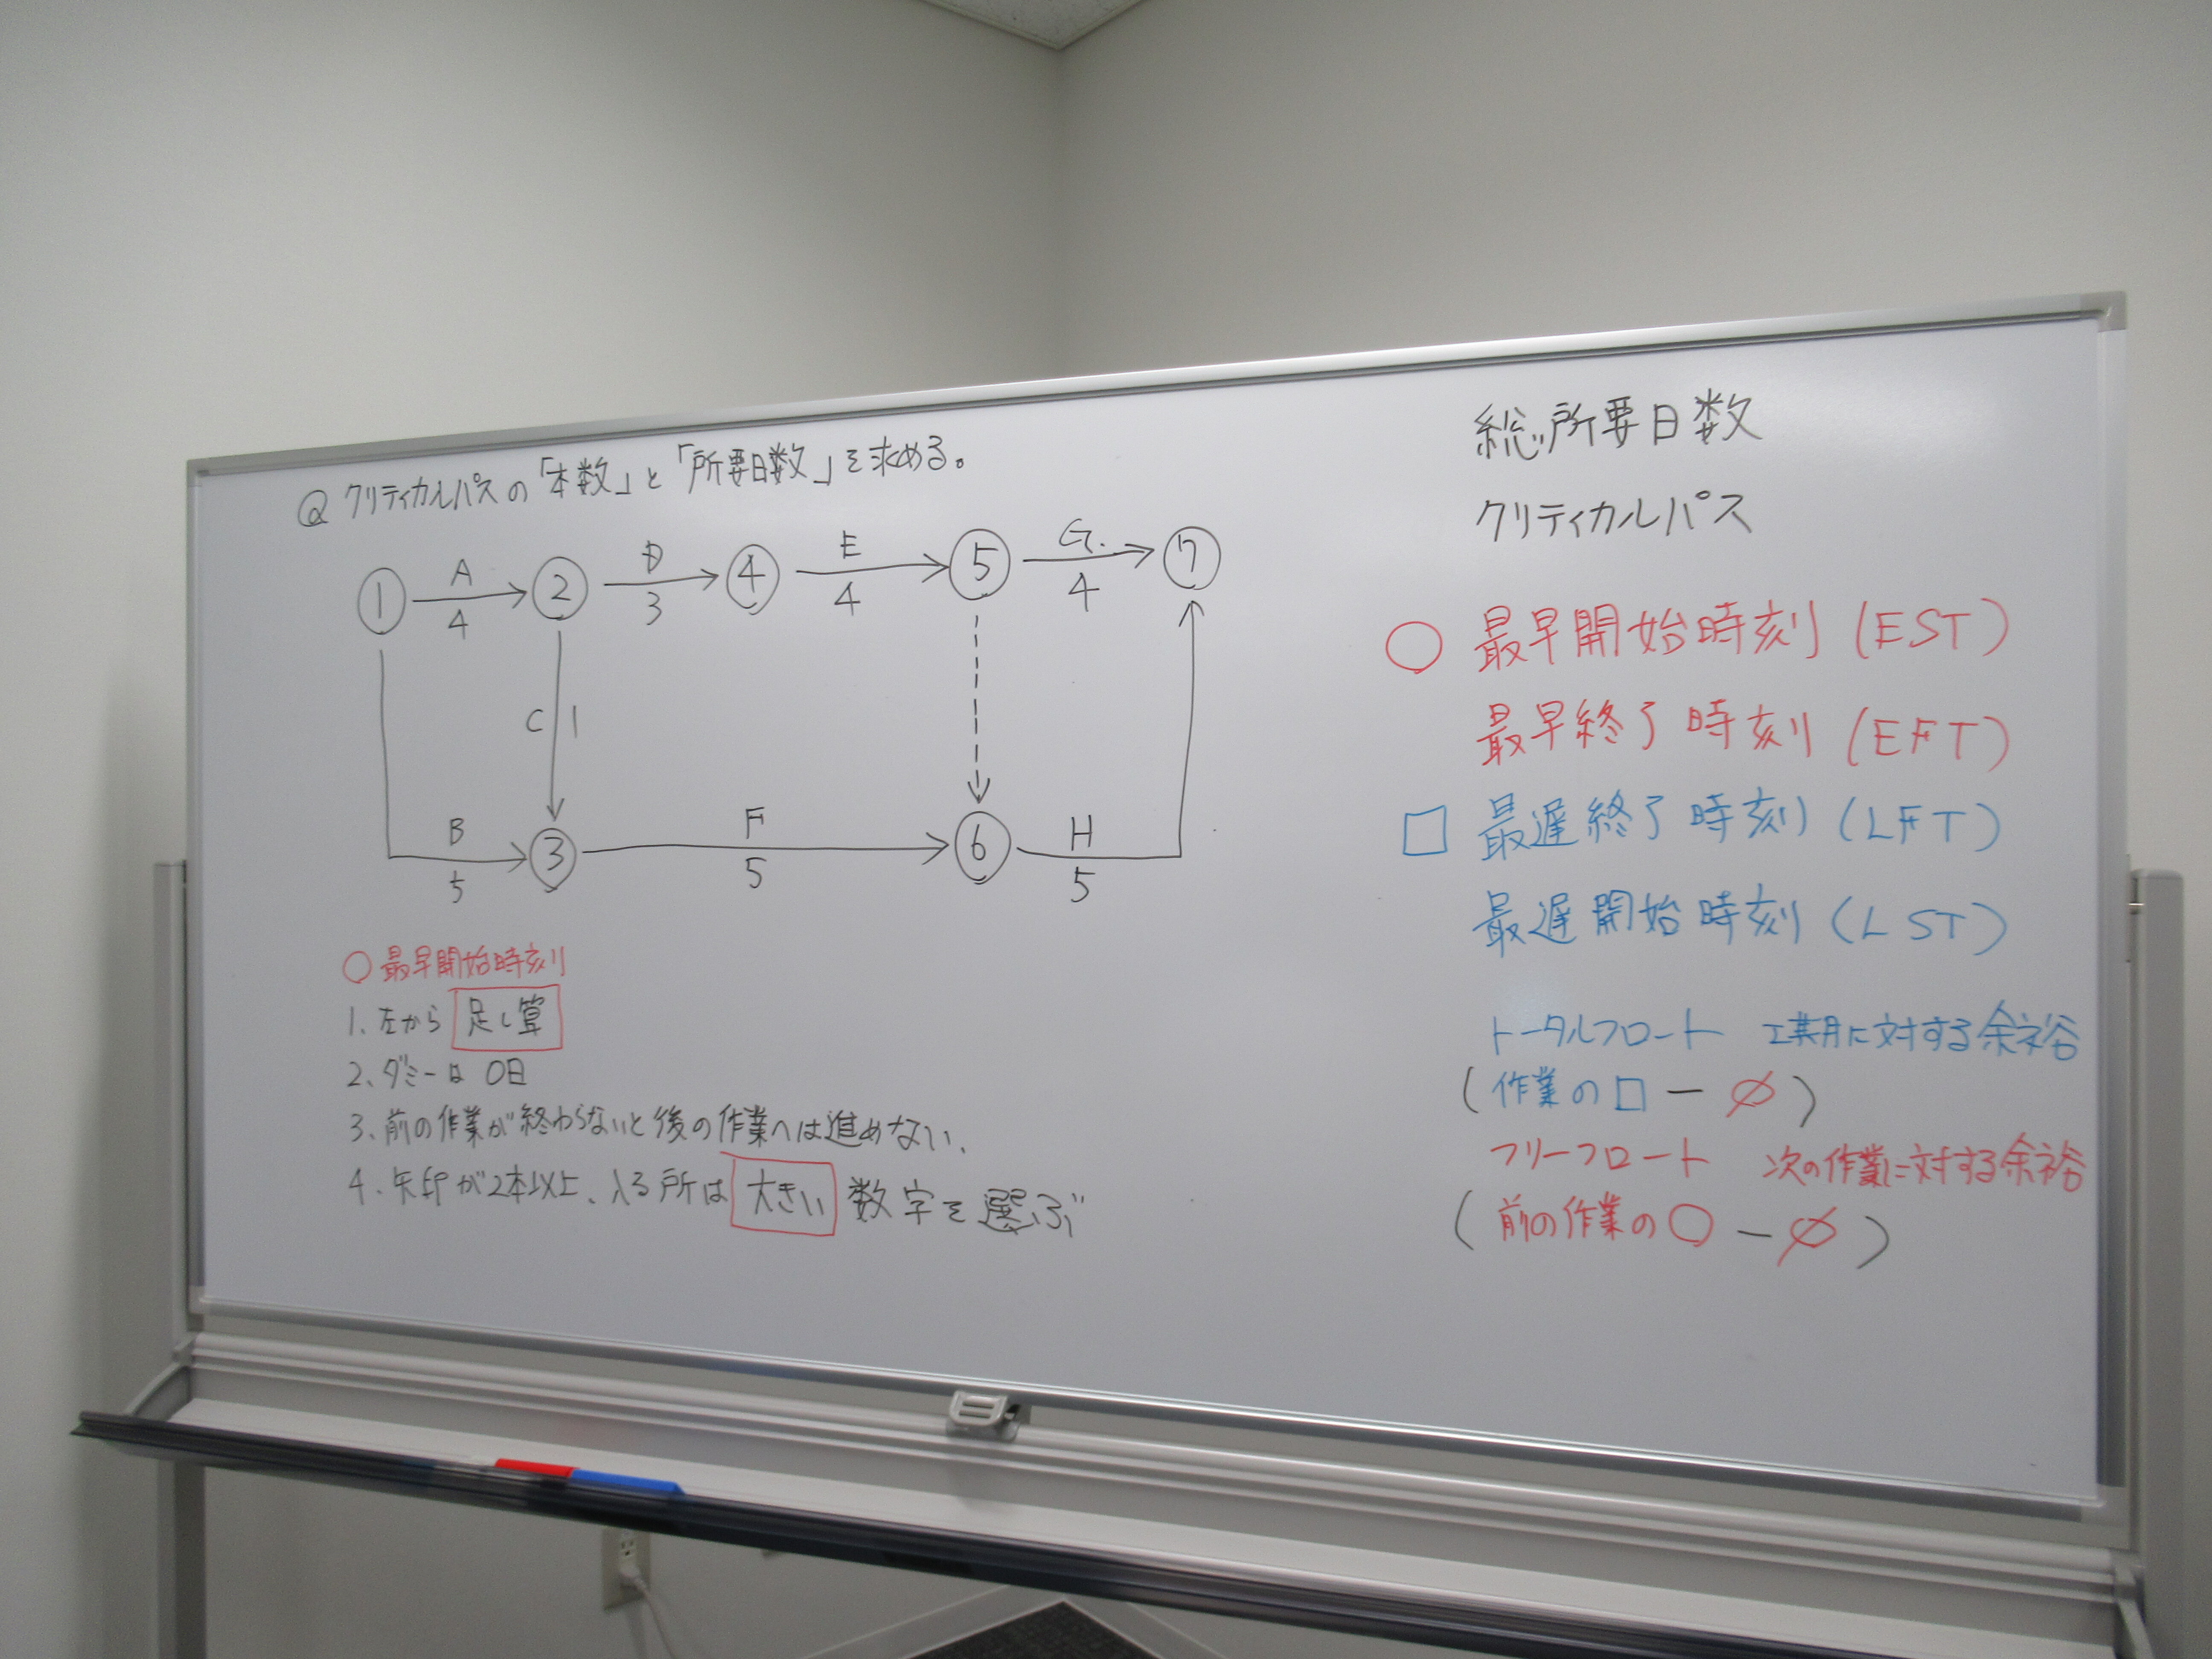 Q クリティカルパスの「本数」と「所要日数」を求める。
① A 4 ② D 3 ④ E 4 ⑤ G. 4 ⑦
C 1
B 5 ③ F 5 ⑥ H 5
○ 最早開始時刻
1、左から 足し算
2、ダミーは 0日
3、前の作業が終わらないと後の作業へは進めない、
4、矢印が2本以上、入る所は 大きい 数字を選ぶ
総所要日数
クリティカルパス
○ 最早開始時刻 (EST)
最早終了時刻 (EFT)
□ 最遅終了時刻 (LFT)
最遅開始時刻 (LST)
トータルフロート 工期に対する余裕
(作業の□ー⌀)
フリーフロート 次の作業に対する余裕
(前の作業の○ー⌀)